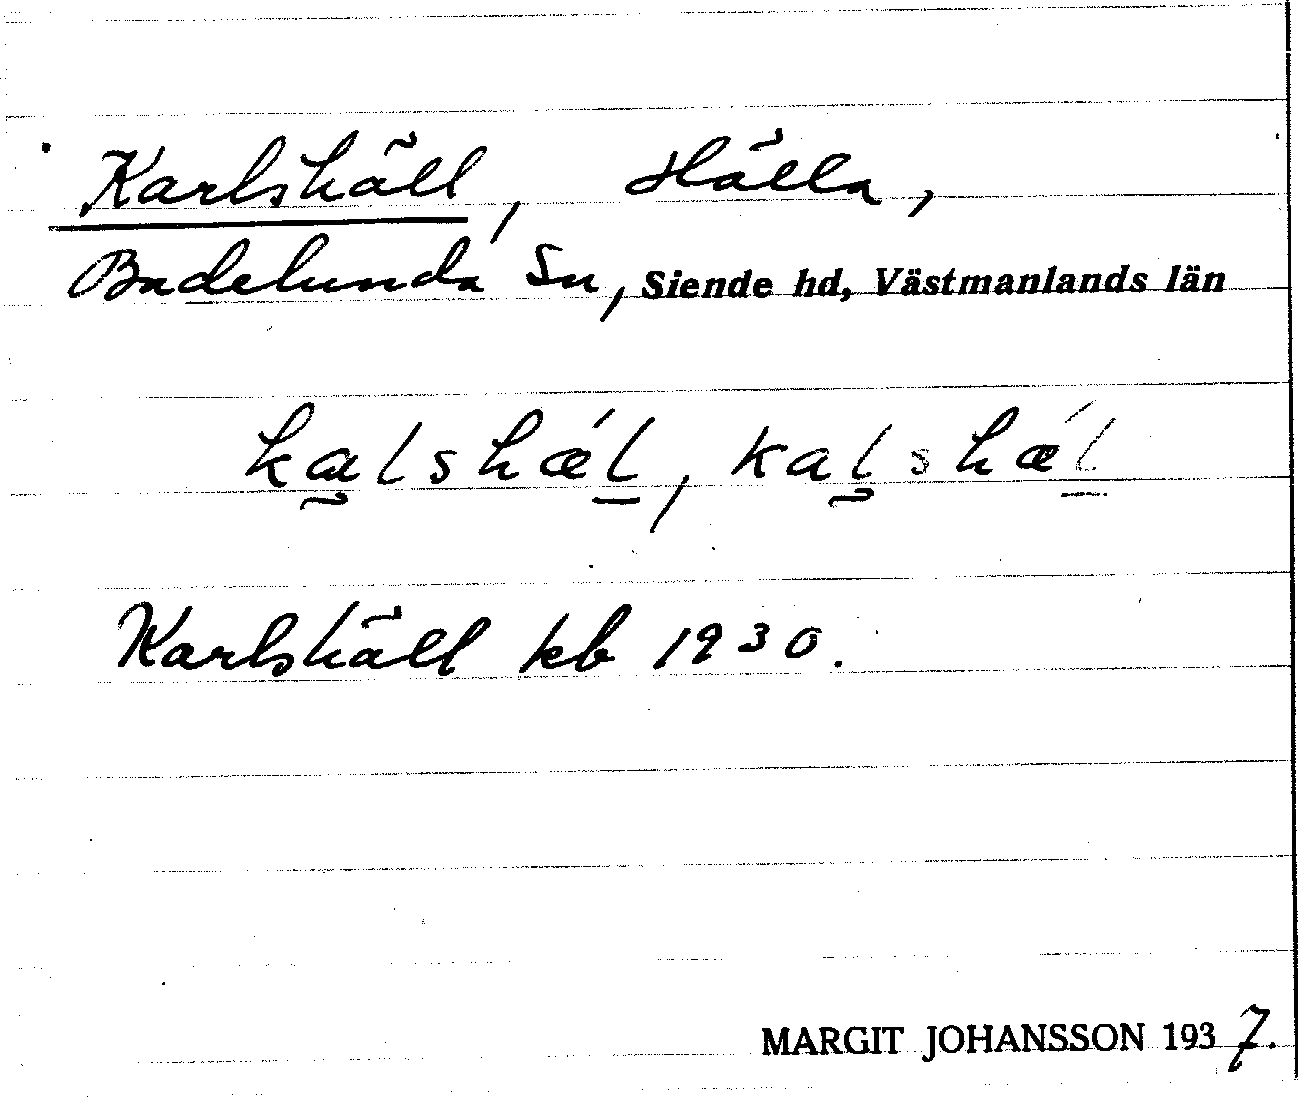 Karlshäll, Hälla,
Badelunda Sn, Siende hd, Västmanlands län
kalshǽl, kalshǽl
Karlshäll kb 1930.
MARGIT JOHANSSON 1937.